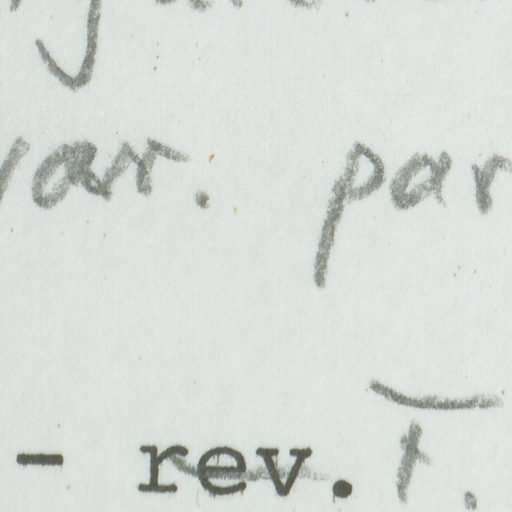 var. par
- rev. t.